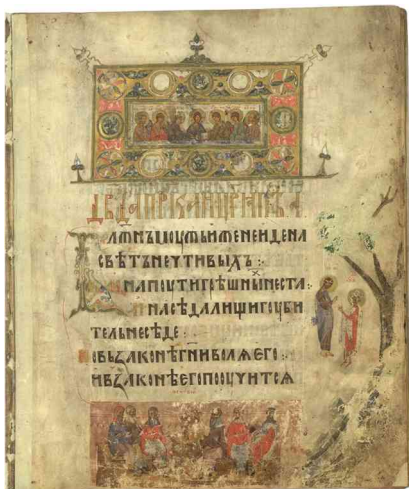 БЛЖНЪ МОУЖЬ ИЖЕ НЕ ИДЕ НА
СВѢТЪ НЕЧТИВЫХЪ :·
И НА ПОУТИ ГРѢШНЫХ НЕ СТА :·
И НА СѢДАЛИЩИ ГОУБИ
ТЕЛЬ НЕ СѢДЕ :·
НО ВЬ ЗАКОНѢ ГНИ ВОЛѦ ЕГО :·
И ВЬ ЗАКОНѢ ЕГО ПООУЧИТСѦ